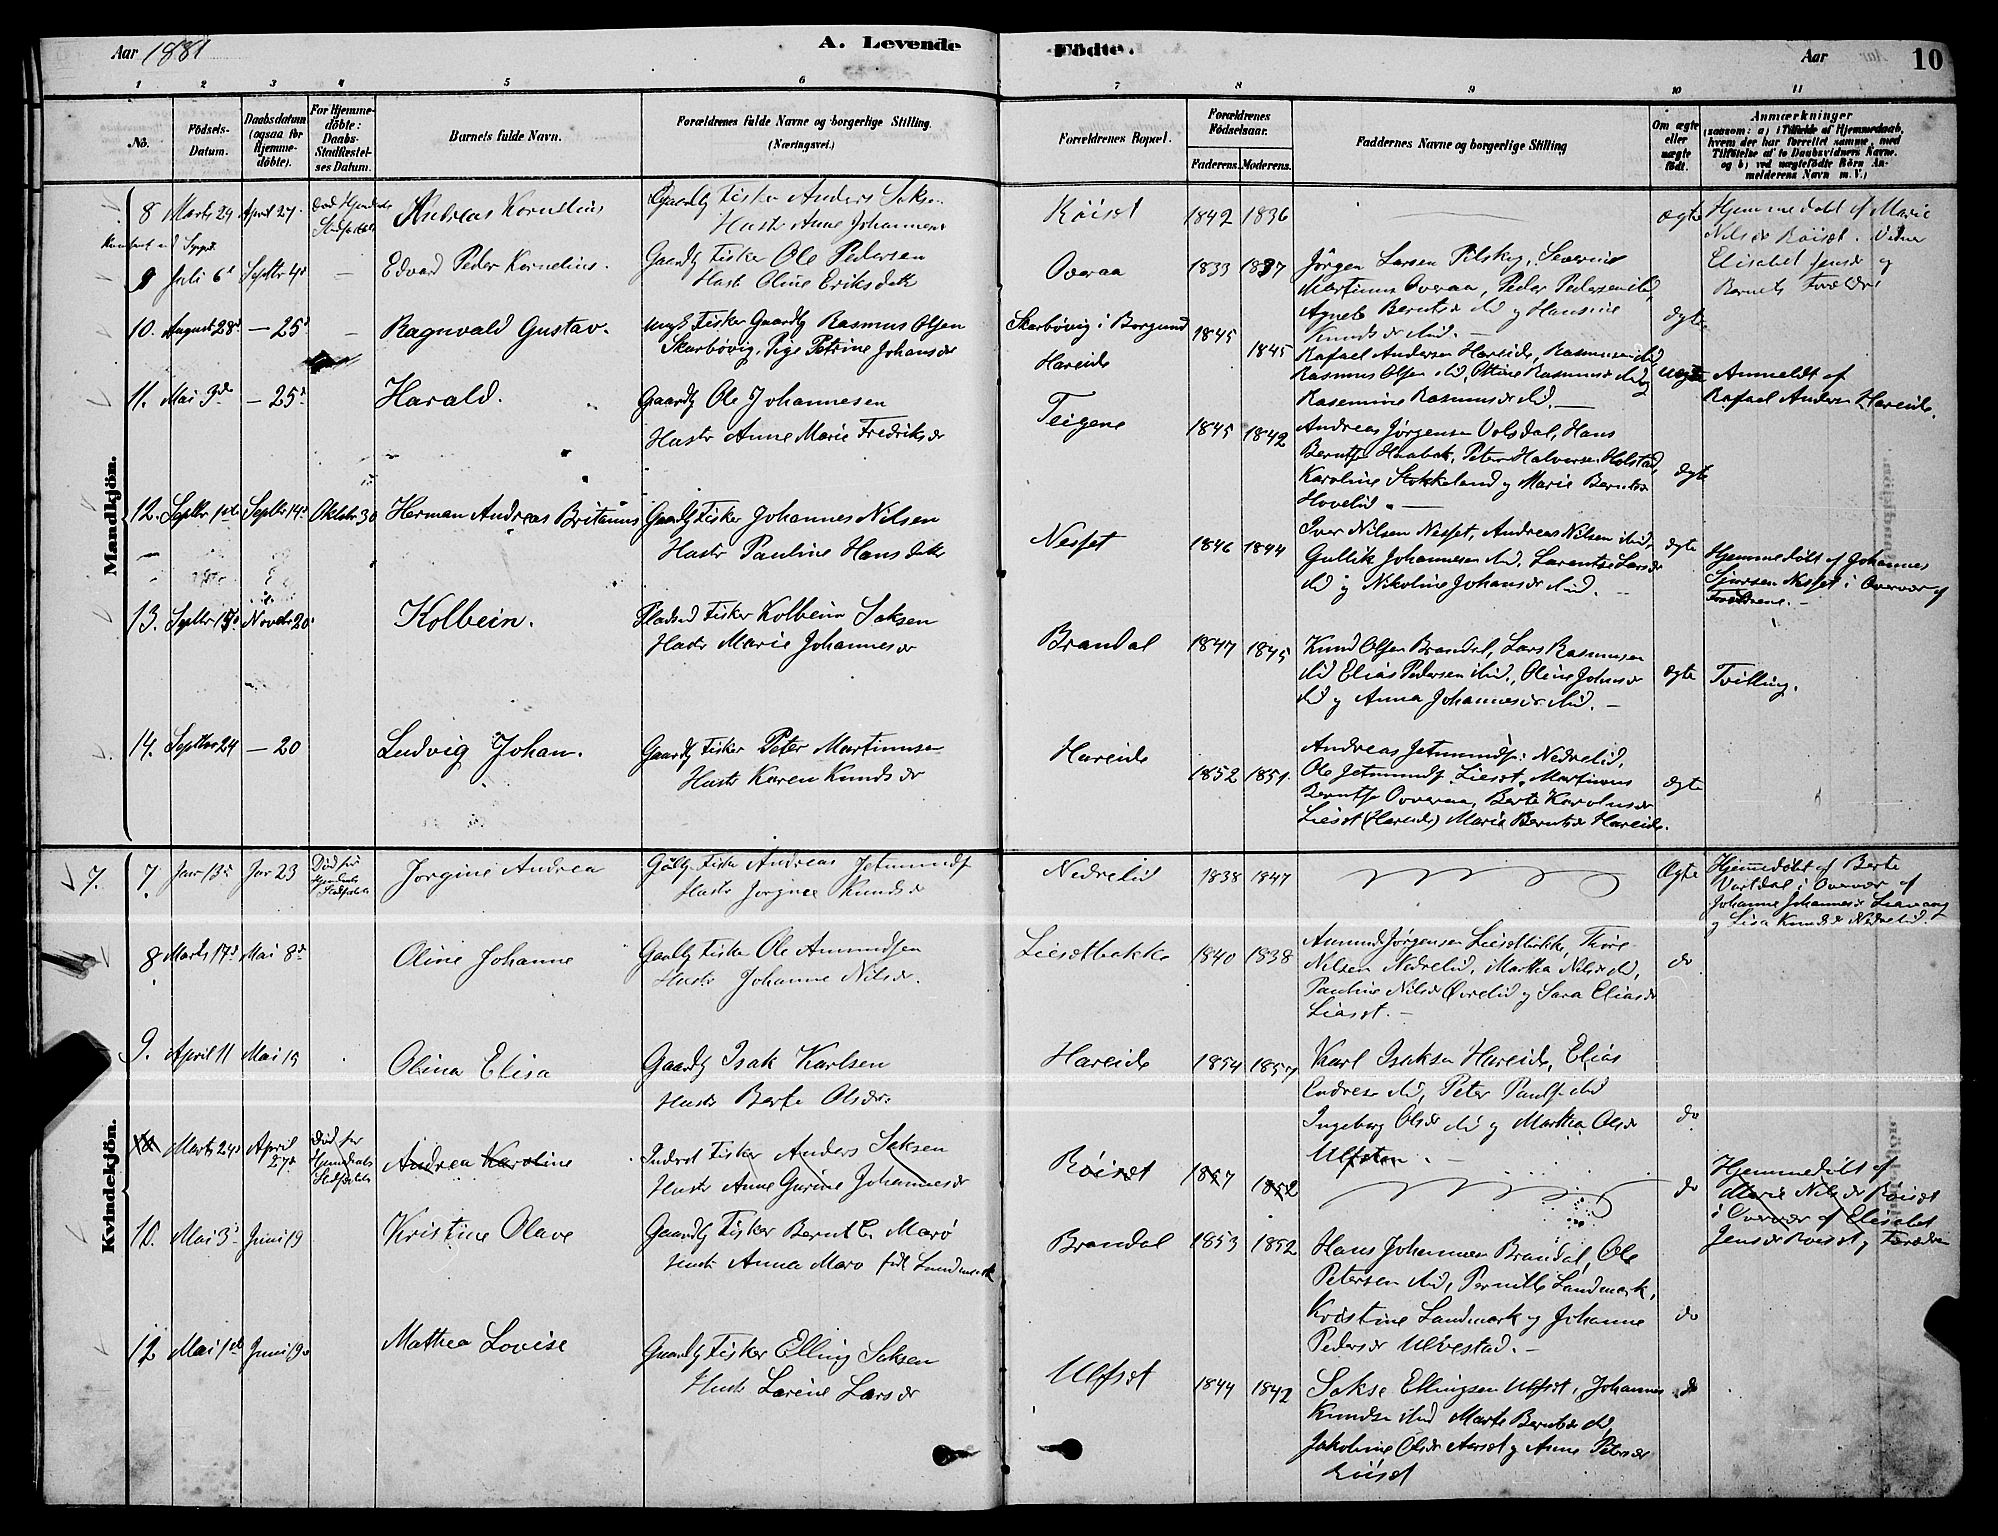 Aar 1881
A. Levende
Födte.
Aar
10
1 2 3 4 5 6 7 8 9 10 11
No.
Födsels-Datum.
Daabsdatum (ogsaa for Hjemme-döbte).
For Hjemme-döbte: Daabs-Stadfæstel-ses Datum.
Barnets fulde Navn.
Forældrenes fulde Navne og borgerlige Stilling.
(Næringsvei.)
Forældrenes Bopæl.
Forældrenes Födselsaar.
Faderens. Moderens.
Faddernes Navne og borgerlige Stilling
Om ægte eller uægte födt.
Anmærkninger
(saasom: a) i Tilfælde af Hjemmedaab, hvem der har forrettet samme, med Tilföielse af to Daabsvidners Navne. og b) ved uægtefödte Börn An-melderens Navn m. V.)
Mandkjön.
8 Marts 29 April 27 Andreas Kornelius
Gaardb Fisker Anders Saks.
Hustr Anne Johannesdr
Röiset 1842 1836 ægte
Hjemmedöbt af Marie
Nilsdr Röiset. Vidner
Elisabet Jensdr og
Barnets Forældre
9 Juli 6 Septbr 4 — Edvard Peder Kornelius.
Gaardb Fisker Ole Pedersen
Hustr Oline Eriksdatr
Overaa 1833 1837
Jörgen Larsen Pilskog, Severine
Martinus Overaa, Peder Pedersen ibid,
Agnete Berntsdr ibid og Hansine
Knudsdr ibid. — ægte
10. August 28 — 25 — Ragnvald Gustav.
Ungk Fisker Gaardb Rasmus Olsen
Skarbövig, Pige Petrine Johansdr
Skarbövig i Borgund
Hareide
1845 1845
Rafael Andersen Hareide, Rasmus ibid,
Rasmus Olsen ibid, Ottine Rasmusdr ibid og
Rasmine Rasmusdr ibid. — uægte
Anmeldt af
Rafael Anders. Hareide.
11. Mai 3 — 25 Harald.
Gaardb Ole Johannesen
Hustr Anne Marie Fredriksdr
Teigene 1845 1842
Andreas Jörgensen Volsdal, Hans
Berntsen Haabak, Peter Halvorsen Holstad,
Karoline Stokkeland og Marie Berntsdr
Hovelid. — ægte
12. Septbr 1 Septbr 14 Oktobr 30 Herman Andreas Britanus
Gaardb Fisker Johannes Nilsen
Hustr Pauline Hansdatr
Nesset 1846 1844
Iver Nilsen Nesset, Andreas Nilsen ibid,
Gullik Johannesen ibid, Larentse Larsdr
ibid og Nikoline Johansdr ibid. — ægte
Hjemmedöbt af Johannes
Sjursen Nesset i Overvær af
Forældrene. —
13. Septbr 15 Novbr 20 Kolbein.
Pladsmd Fisker Kolbein Saksen
Hustr Marie Johannesdr
Brandal 1847 1845
Knud Olsen Brandal, Lars Rasmussen
ibid Elias Pedersen ibid., Oline Johnsdr
ibid og Anna Johannesdr ibid. — ægte
Tvilling.
14. Septbr 24 — 20 Ludvig Johan.
Gaardb Fisker Peter Martinusen
Hustr Karen Knudsdr
Hareide 1852 1851.
Andreas Jetmundsen Nedrelid,
Ole Jetmunds. Lieset, Martinus
Berntsen Overaa, Berte Karolusdr
Lieset (Hareide) Marie Berntsdr Hareide. ægte
Kvindekjön.
7. 7. Jan 13 Jan 23 Död för Hjemdaabs Stadfæstelse Jorgine Andrea
Fisker Andreas Jetmunds.
Hustr Jorgine Knudsdr
Nedrelid 1838 1847 Ægte
Hjemmedöbt af Berte
Vartdal i Overvær af
Johanne Johannesdr Liavaag
og Lisa Knudsdr Nedrelid.
8 Marts 17 Mai 8 Oline Johanne
Gaardb Fisker Ole Amundsen
Hustr Johanne Nilsdr.
Liesetbakke 1840 1838
Amund Jörgensen Liesetbakke, Thore
Nilsen Nedrelid, Martha Nilsdr ibid,
Pauline Nilsdr Övrelid og Sara Eliasdr
Lieset. — do
9. April 11 Mai 15 Olina Elisa
Gaardb Isak Karlsen
Hustr Berte Olsdr.
Hareide 1854 1857
Karl Isaksen Hareide, Elias
Endresen ibid, Peter Pauls. ibid
Ingeborg Olsdr ibid og Martha Olsdr
Ulfsten. — do
Marts 24 April 27 Död for Hjemdaabs Stadfæstelse Andrea Karoline
Inderst Fisker Anders Saksen
Hustr Anne Gurine Johannesdr
Röiset 1857 1852 do
Hjemmedöbt af
Marie Nilsdr Röiset
i Overvær af Elisabet
Jensdr Röiset og Forældre
10. Mai 3 Juni 19 Kristine Olave
Gaardb Fisker Bernt E. Marö
Hustr Anna Marö född Landmark
Brandal 1853 1852
Hans Johannesen Brandal, Ole
Petersen ibid, Pernille Landmark,
Kristine Landmark og Johanne
Pedersdr Ulvestad. — do
12 Mai 1 Juni 19 Mathea Lovise
Gaardb Fisker Elling Saksen
Hustr Larine Larsdr
Ulfset 1844 1842
Sakse Ellingsen Ulfset, Johannes
Knudsen ibid Marte Berntsdr ibid,
Jakobine Olsdr Aarset og Anne Petersdr
Röiset do